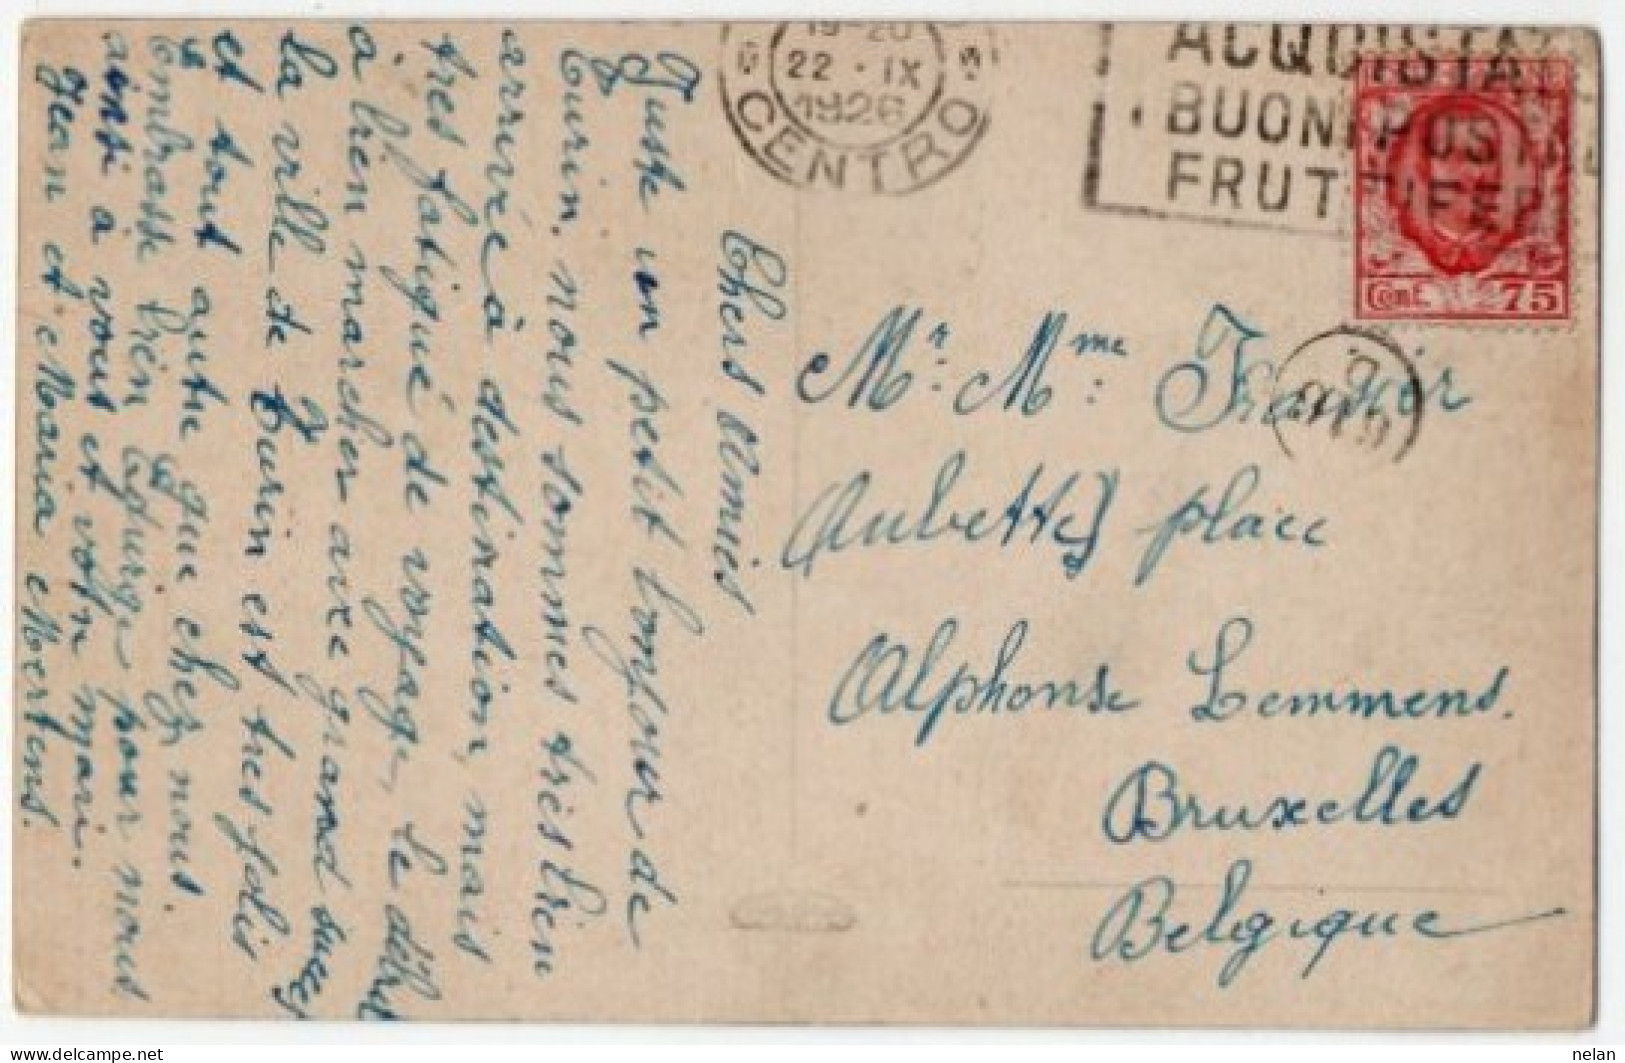 19-20
22 · IX
1926
CENTRO
ACQUISTATE
BUONI POSTALI
FRUTTIFERI
Cent. 75
Chers Amies
Juste un petit bonjour de
Turin. nous sommes très bien
arrivé à destination, mais
tres fatigué de voyage, le début
a bien marcher avec grand succes
la ville de Turin est tres jolis
et tout autre que chez nous.
Embrasse bien pour nous
ainsi à vous et votr mari.
Jean et Maria Mertens.
Mr. Mme:
Aubette place
Alphonse Lemmens.
Bruxelles
Belgique
nelan